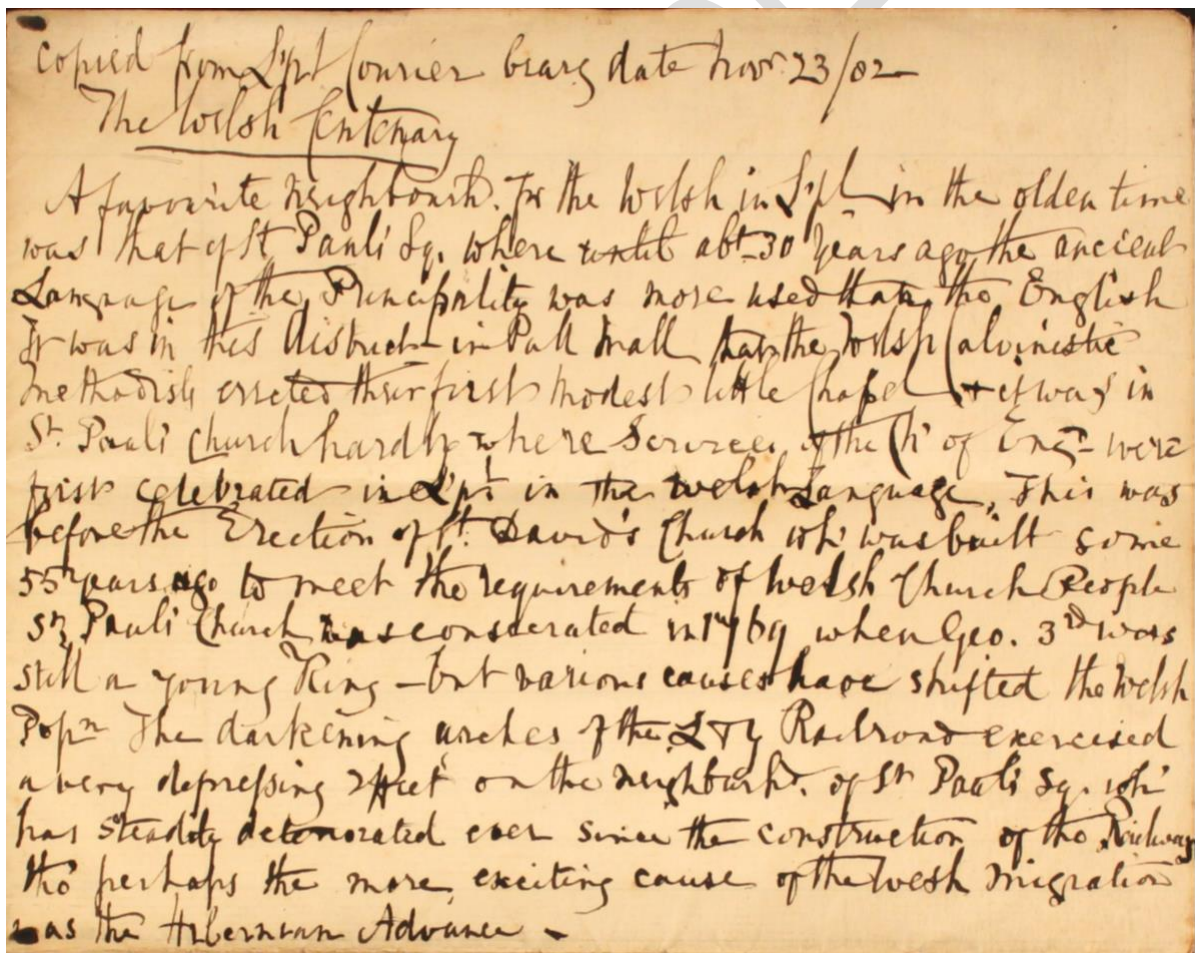 copied from L'pl Courier bearg date Novr 23/82
The Welsh Centenary
A favourite neighbourh. for the Welsh in L'pl in the olden time
was that of St Paul's Sq. where until abt 30 years ago the ancient
Language of the Principality was more used than the English
It was in this district in Pall Mall that the Welsh Calvinistic
Methodists errected their first modest little Chapel & it was in
St. Paul's Church hard by where Services of the Ch of Engd were
first celebrated in L'pl in the Welsh Language, This was
before the Erection of St. David's Church wh was built some
55 years ago to meet the requirements of Welsh Church People
St Paul's Church was consecrated in 1769 when Geo. 3rd was
still a young King – but various causes have shifted the Welsh
Popn The darkening arches of the L & Y Railroad exercised
a very depressing effect on the neighbourhd. of St Paul's Sq. wh
has steadily deteriorated ever since the construction of the Railway
tho' perhaps the more exciting cause of the Welsh migration
was the Hibernian Advance –